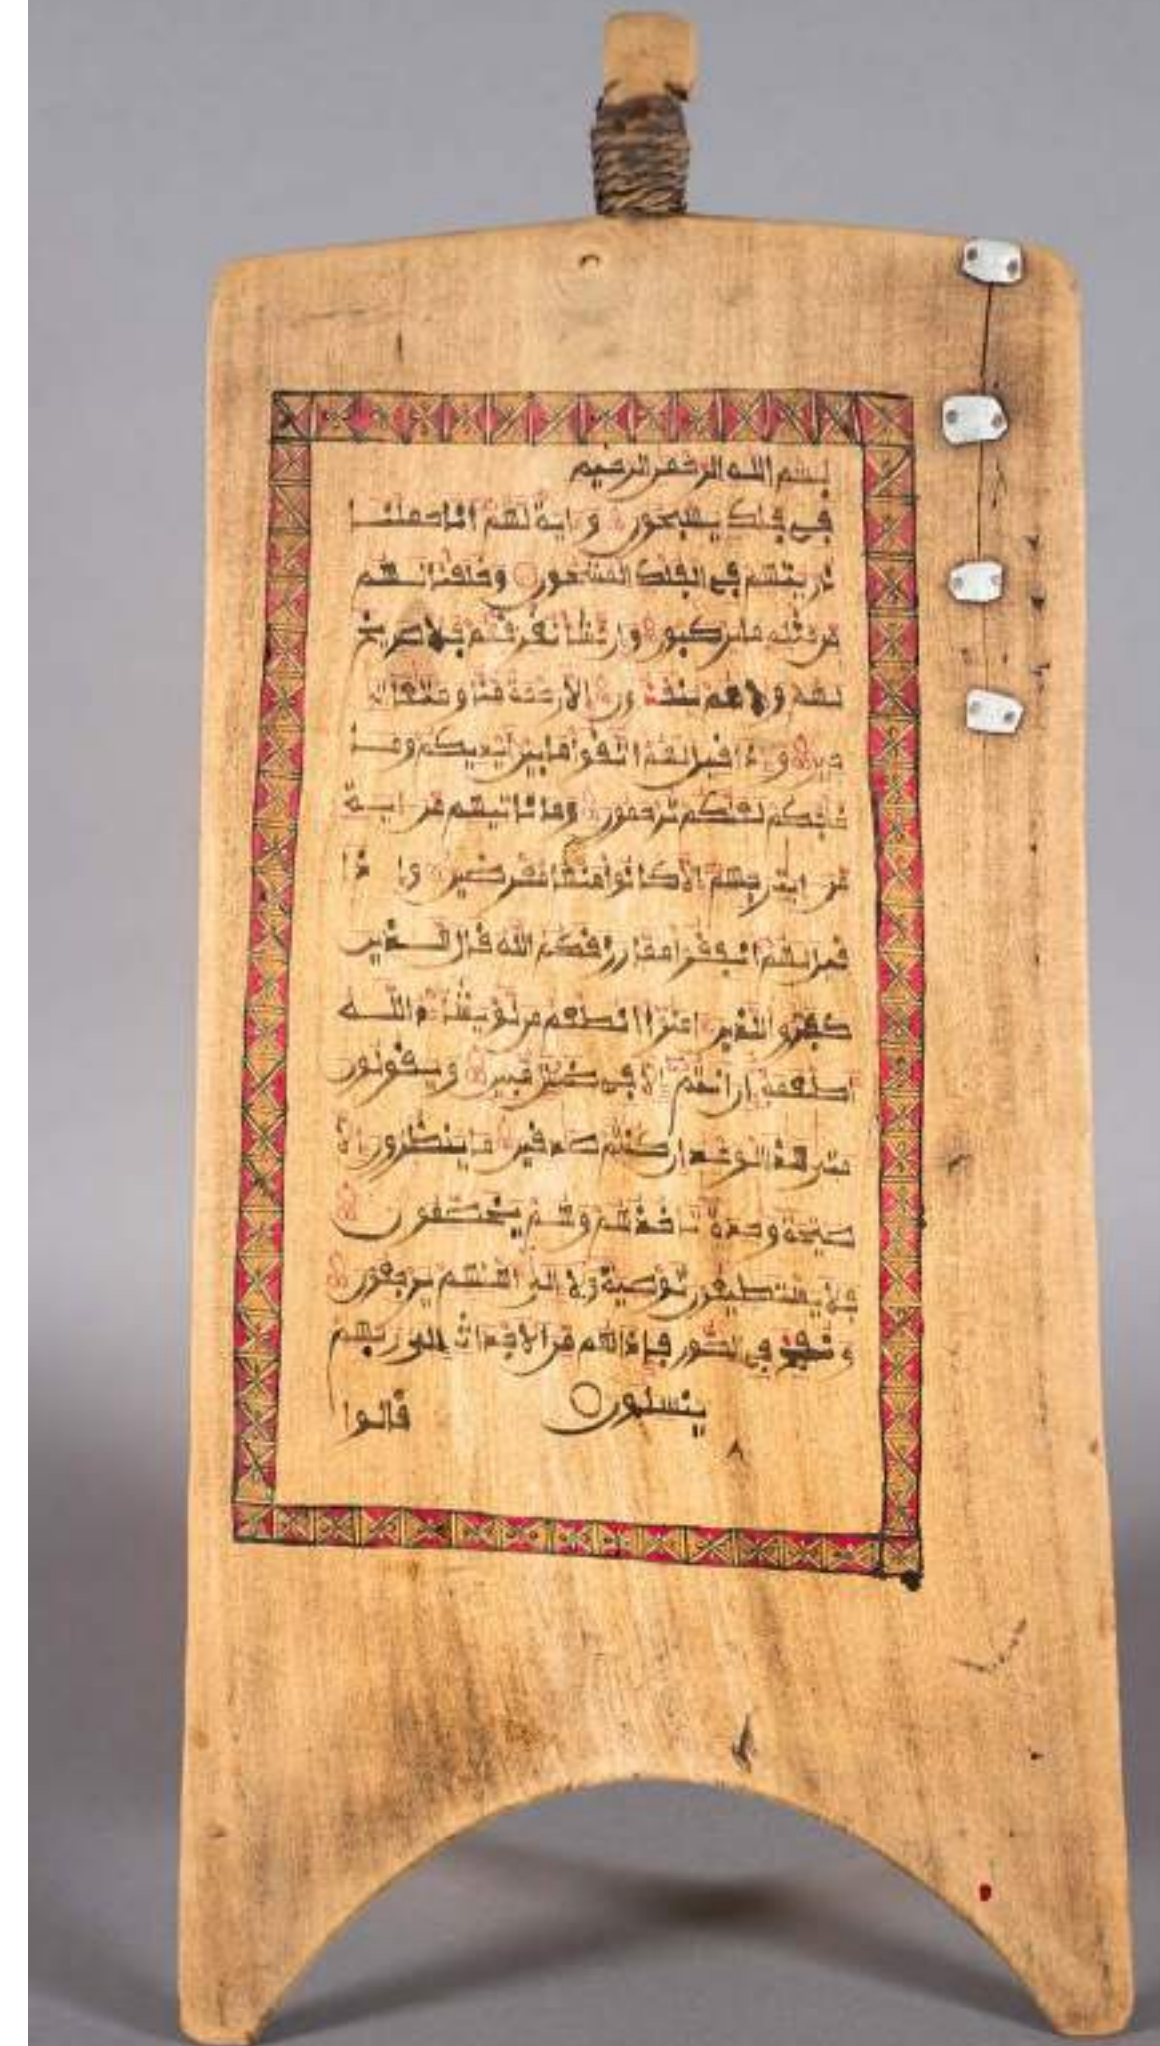 بسم الله الرحمن الرحيم
في فلك يسبحون واية لهم انا حملنا
ذريتهم في الفلك المشحون وخلقنا لهم
من مثله ما يركبون وان نشا نغرقهم فلا صريخ
لهم ولا هم ينقذون الا رحمة منا ومتعا الى
حين واذا قيل لهم اتقوا ما بين ايديكم وما
خلفكم لعلكم ترحمون وما تاتيهم من اية
من ايت ربهم الا كانوا عنها معرضين واذا
قيل لهم انفقوا مما رزقكم الله قال الذين
كفروا للذين امنوا انطعم من لو يشاء الله
اطعمه ان انتم الا في ضلل مبين ويقولون
متى هذا الوعد ان كنتم صدقين ما ينظرون الا
صيحة وحدة تاخذهم وهم يخصمون
فلا يستطيعون توصية ولا الى اهلهم يرجعون
ونفخ في الصور فاذا هم من الاجداث الى ربهم
ينسلون قالوا